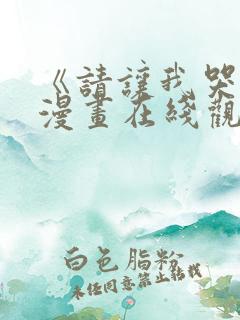 《請讓我哭
漫畫在綫觀
白色脂粉
未经同意禁止转载